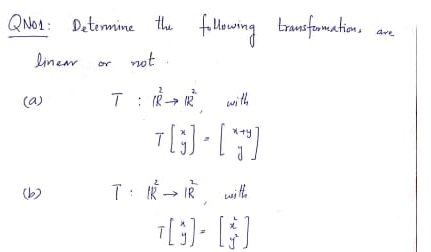 QNo1: Determine the following transformations are
linear or not.
(a) T : ℝ² → ℝ², with
T [x y] = [x+y y]
(b) T : ℝ² → ℝ², with
T [x y] = [x² y²]